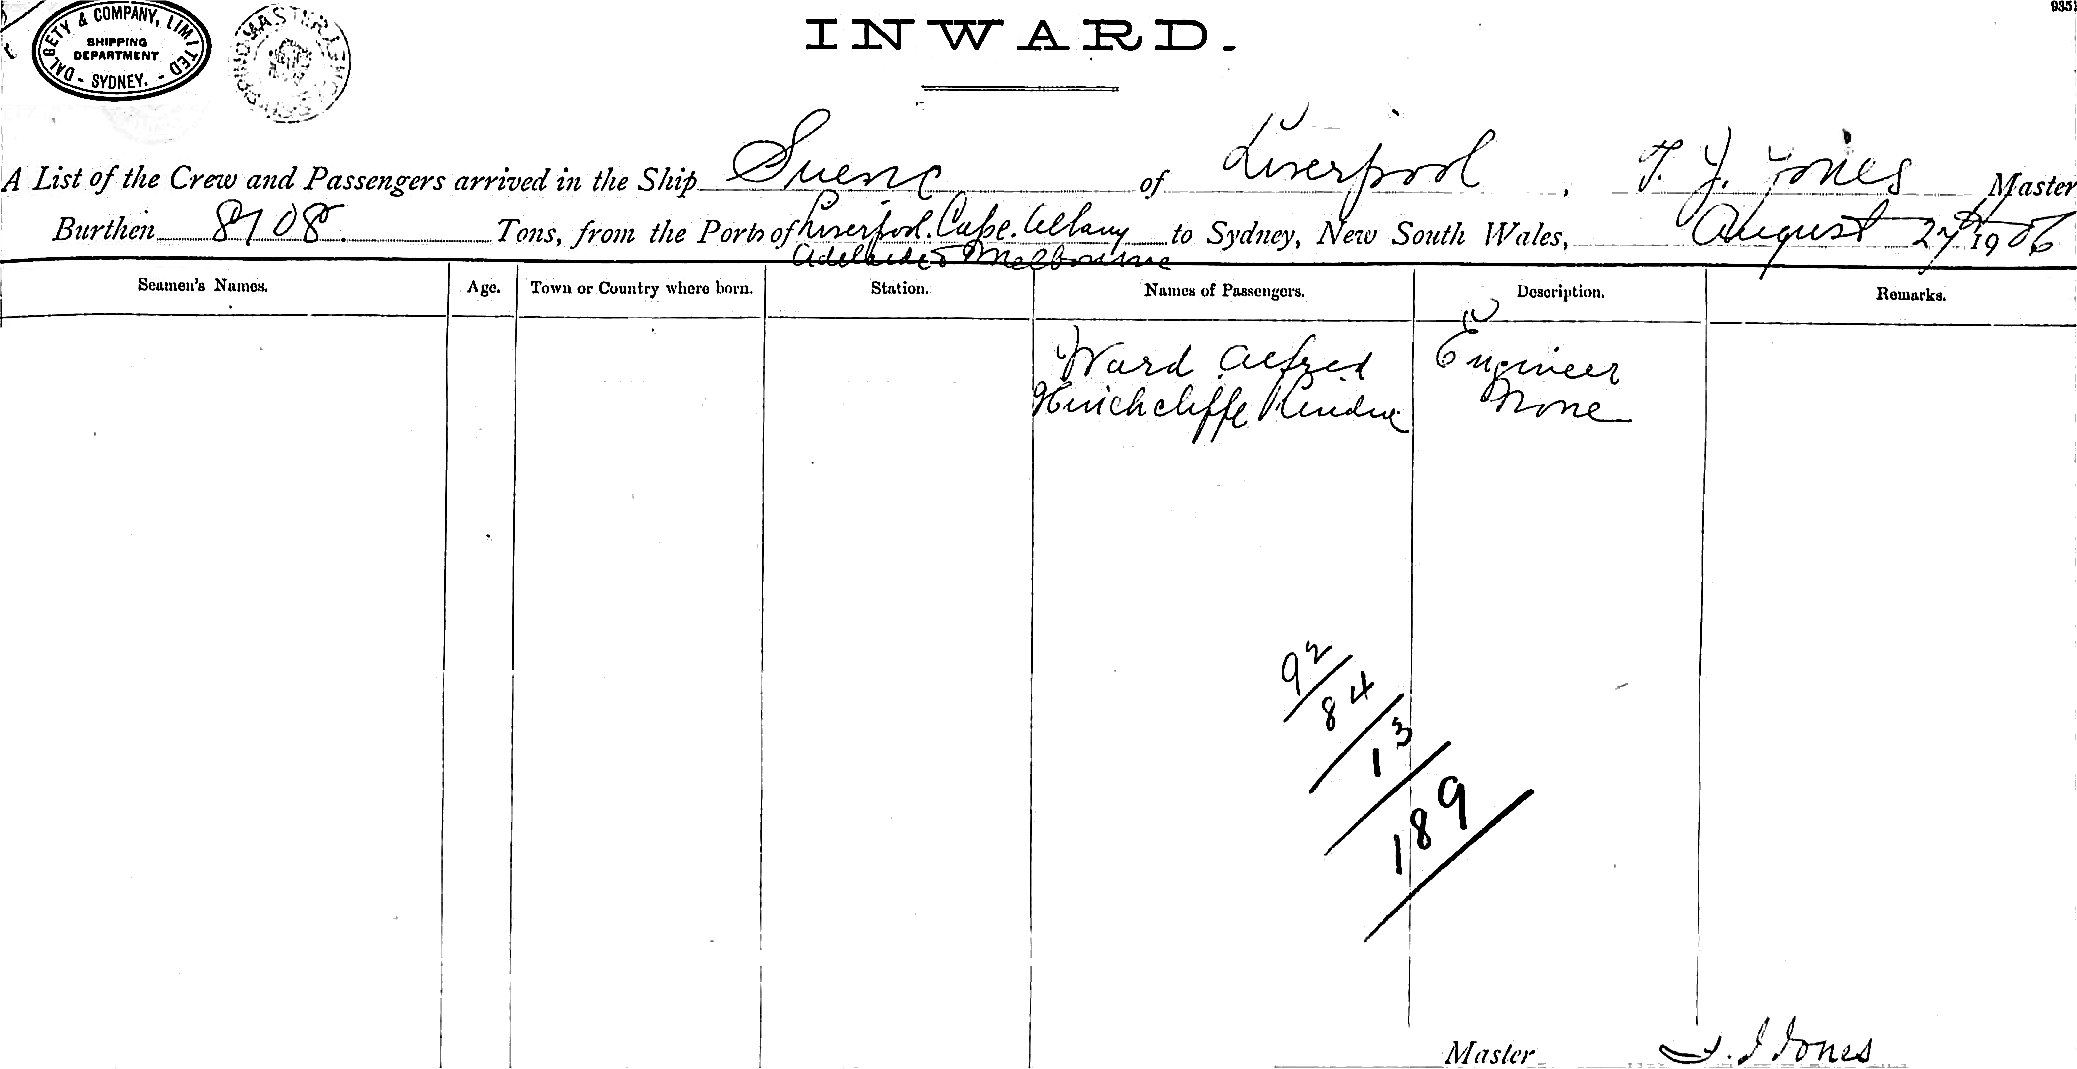 9352
DALGETY & COMPANY, LIMITED
SHIPPING
DEPARTMENT
- SYDNEY. -
INWARD.
A List of the Crew and Passengers arrived in the Ship Suevic of Liverpool, T. J. Jones Master
Burthen 8108. Tons, from the Ports of Liverpool. Cape. Albany to Sydney, New South Wales, August 27th 1906
Adelaide & Melbourne
Seamen's Names. Age. Town or Country where born. Station. Names of Passengers. Description. Remarks.
Ward Alfred Engineer
Hinchcliffe None
92
84
13
189
Master T. J Jones